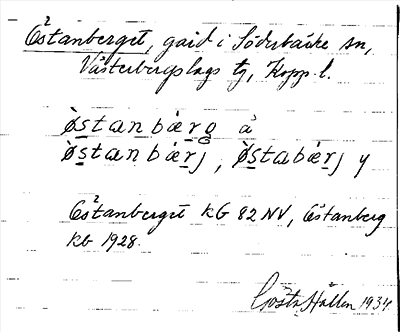 Östanberget, gård i Söderbärke sn,
Västerbergslags tg, Kopp. l.
òstanbærg å
òstanbærj, òstabærj y
Östanberget KG 82 NV, Östanberg
kb 1928.
Gösta Hallén 1934.